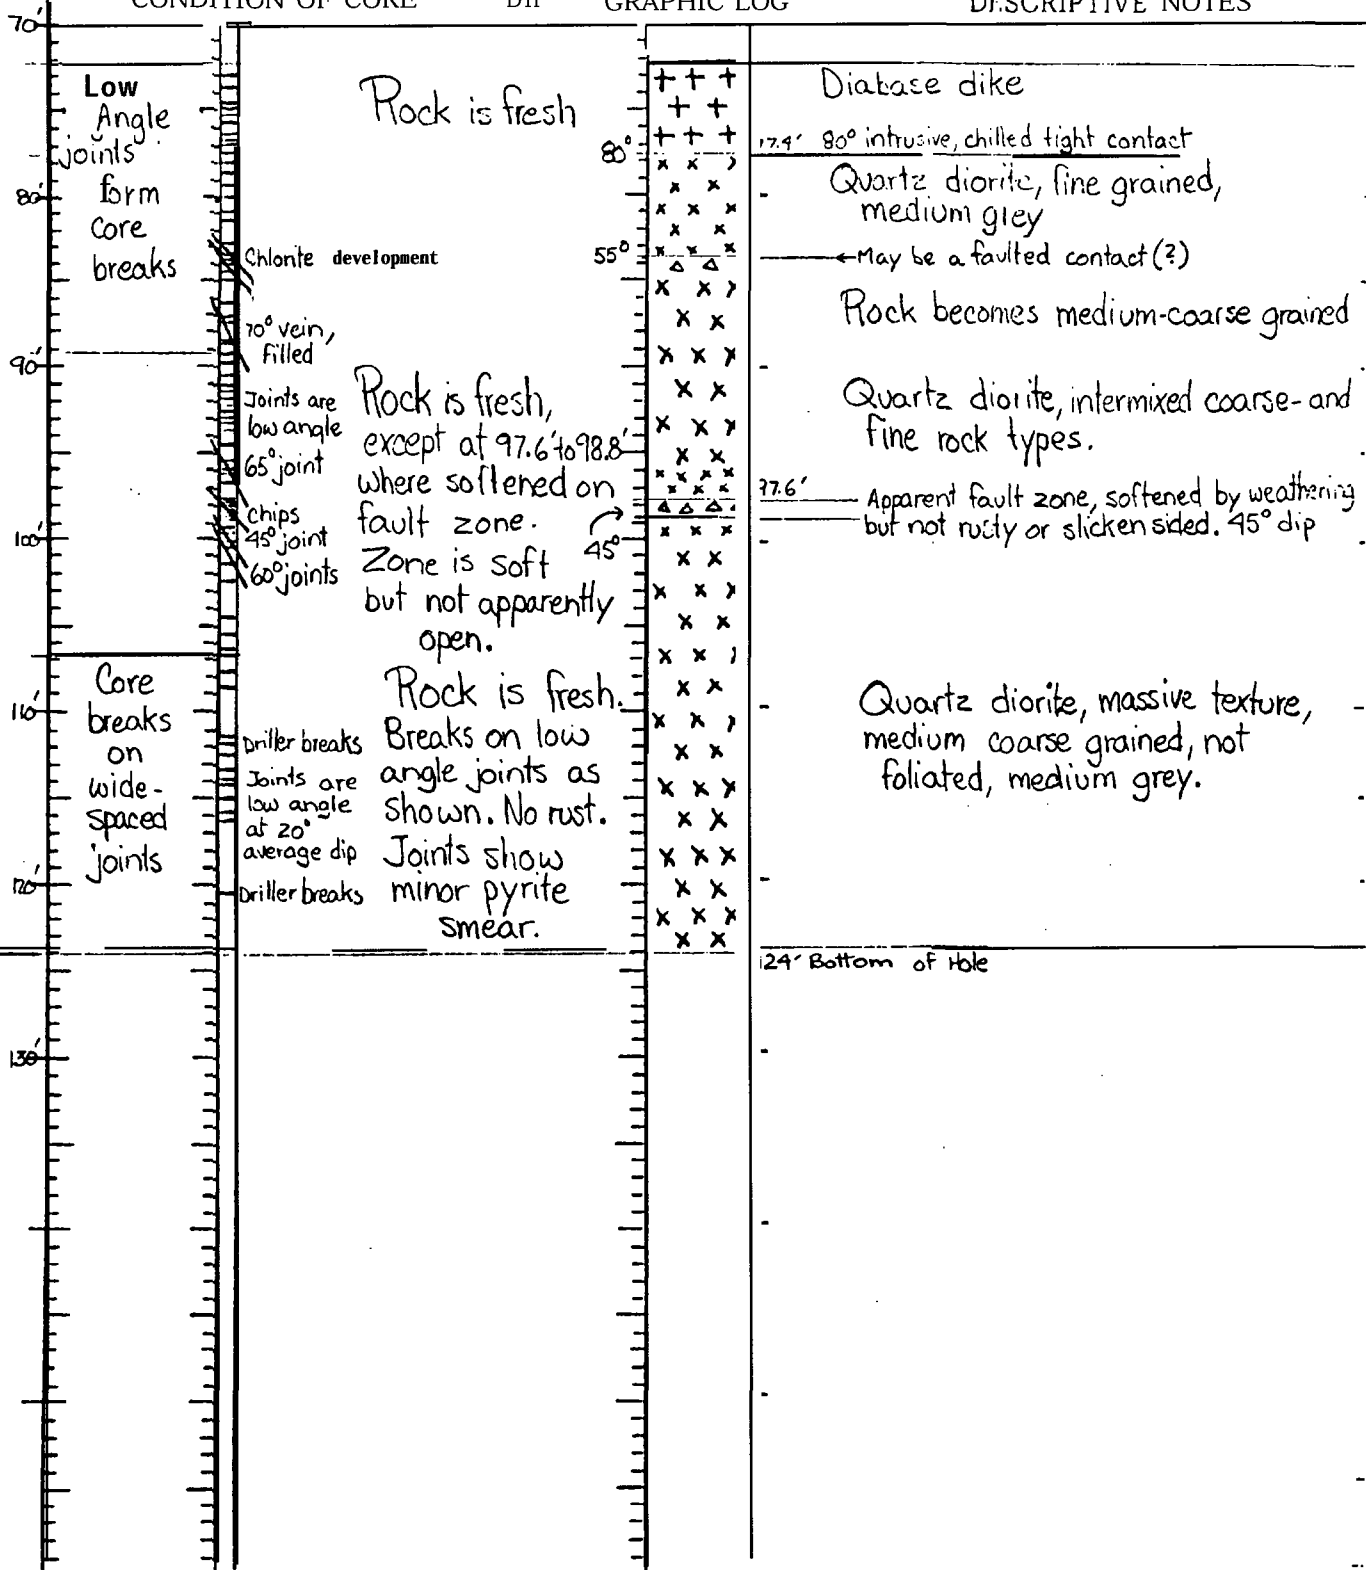 CONDITION OF CORE DIP GRAPHIC LOG DESCRIPTIVE NOTES
70'
Low
Angle
joints
form
core
breaks
80'
90'
100'
Core
breaks
on
wide-
spaced
joints
110'
120'
130'
Chlorite development
70° vein,
filled
Joints are
low angle
65° joint
chips
45° joint
60° joints
Driller breaks
Joints are
low angle
at 20°
average dip
Driller breaks
Rock is fresh
Rock is fresh,
except at 97.6' to 98.8'
where softened on
fault zone.
Zone is soft
but not apparently
open.
Rock is fresh.
Breaks on low
angle joints as
shown. No rust.
Joints show
minor pyrite
smear.
80°
55°
45°
Diabase dike
77.4' 80° intrusive, chilled tight contact
Quartz diorite, fine grained,
medium grey
←May be a faulted contact (?)
Rock becomes medium-coarse grained
Quartz diorite, intermixed coarse- and
fine rock types.
97.6' Apparent fault zone, softened by weathering
but not rusty or slickensided. 45° dip
Quartz diorite, massive texture,
medium coarse grained, not
foliated, medium grey.
124' Bottom of Hole